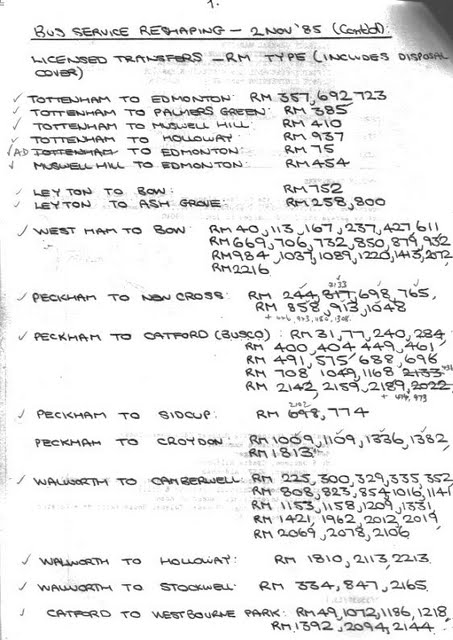 1.
BUS SERVICE RESHAPING - 2 NOV '85 (Contd):
LICENSED TRANSFERS - RM TYPE (INCLUDES DISPOSAL
COVER)
✓ TOTTENHAM TO EDMONTON: RM 357, 692, 723
✓ TOTTENHAM TO PALMERS GREEN: RM 385
✓ TOTTENHAM TO MUSWELL HILL: RM 410
✓ TOTTENHAM TO HOLLOWAY: RM 937
✓ AD TOTTENHAM TO EDMONTON: RM 75
✓ MUSWELL HILL TO EDMONTON: RM 454
✓ LEYTON TO BOW: RM 752
✓ LEYTON TO ASH GROVE: RM 258, 800
✓ WEST HAM TO BOW: RM 40, 113, 167, 237, 427, 611
RM 669, 706, 732, 850, 879, 932
RM 984, 1037, 1089, 1220, 1413, 2172
RM 2216
2133
✓ PECKHAM TO NEW CROSS: RM 244, 817, 698, 765,
RM 858, 913, 1048
✓ PECKHAM TO CATFORD (BUSCO): RM 31, 77, 240, 284
RM 400, 404, 449, 461
RM 491, 575, 688, 696
RM 708, 1049, 1168, 2133
RM 2142, 2159, 2189, 2022
✓ PECKHAM TO SIDCUP: RM 698, 774
PECKHAM TO CROYDON: RM 1009, 1109, 1336, 1382
RM 1813
✓ WALWORTH TO CAMBERWELL: RM 225, 300, 329, 335, 352
RM 808, 823, 854, 1016, 1141
RM 1153, 1158, 1209, 1331
RM 1421, 1962, 2012, 2019
RM 2069, 2078, 2106
✓ WALWORTH TO HOLLOWAY: RM 1810, 2113, 2213
✓ WALWORTH TO STOCKWELL: RM 334, 847, 2165
✓ CATFORD TO WESTBOURNE PARK: RM 49, 1072, 1186, 1218
RM 1392, 2094, 2144